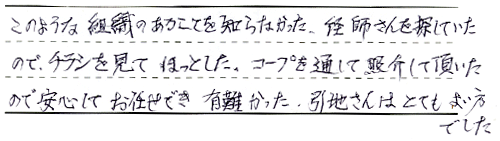 このような組織のあることを知らなかった。経師さんを探していた
ので、チラシを見てほっとした。コープを通して照介して頂いた
ので安心してお任せでき有難かった。引地さんはとてもよい方
でした